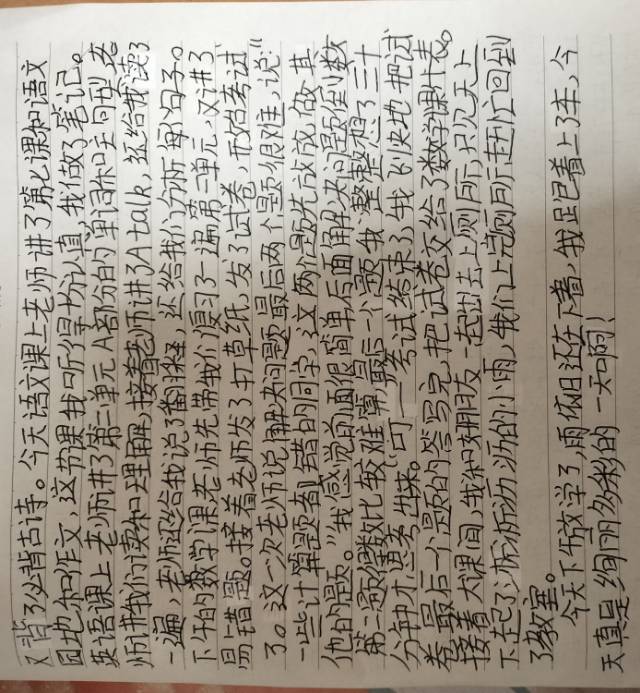 又背了必背古诗。今天语文课上老师讲了第七课和语文
园地和作文，这节课我听得十分认真，我做了笔记。
英语课上老师讲了第二单元A部分的单词和句型，老
师讲我们读和理解，接着老师讲了A talk，还给我读了
一遍，老师还给我说了翻译，还给我们分析每句子。
下午的数学课老师先带我们复习了一遍第二单元，又讲了
易错题。接着老师发了打草纸，发了试卷，开始考试
了。这一次老师说解决问题最后两个题很难，说："
一些计算题都错的同学，这两个题先放放，做其
他的题。"我感觉前面很简单后面解决问题到数
第二题倒数比较难算，最后一个题我整整想了三十
分钟才思考出来。"叮——"考试结束了，我飞快地把试
卷最后一个题的答写完，把试卷交给了数学课代表。
接着大课间，我和好朋友一起出去上厕所，只见天上
下起了淅淅沥沥的小雨，我们上完厕所赶忙回到
了教室。
今天下午放学了，雨依旧还在下着，我跑着上了车，今
天真是绚丽多彩的一天啊！